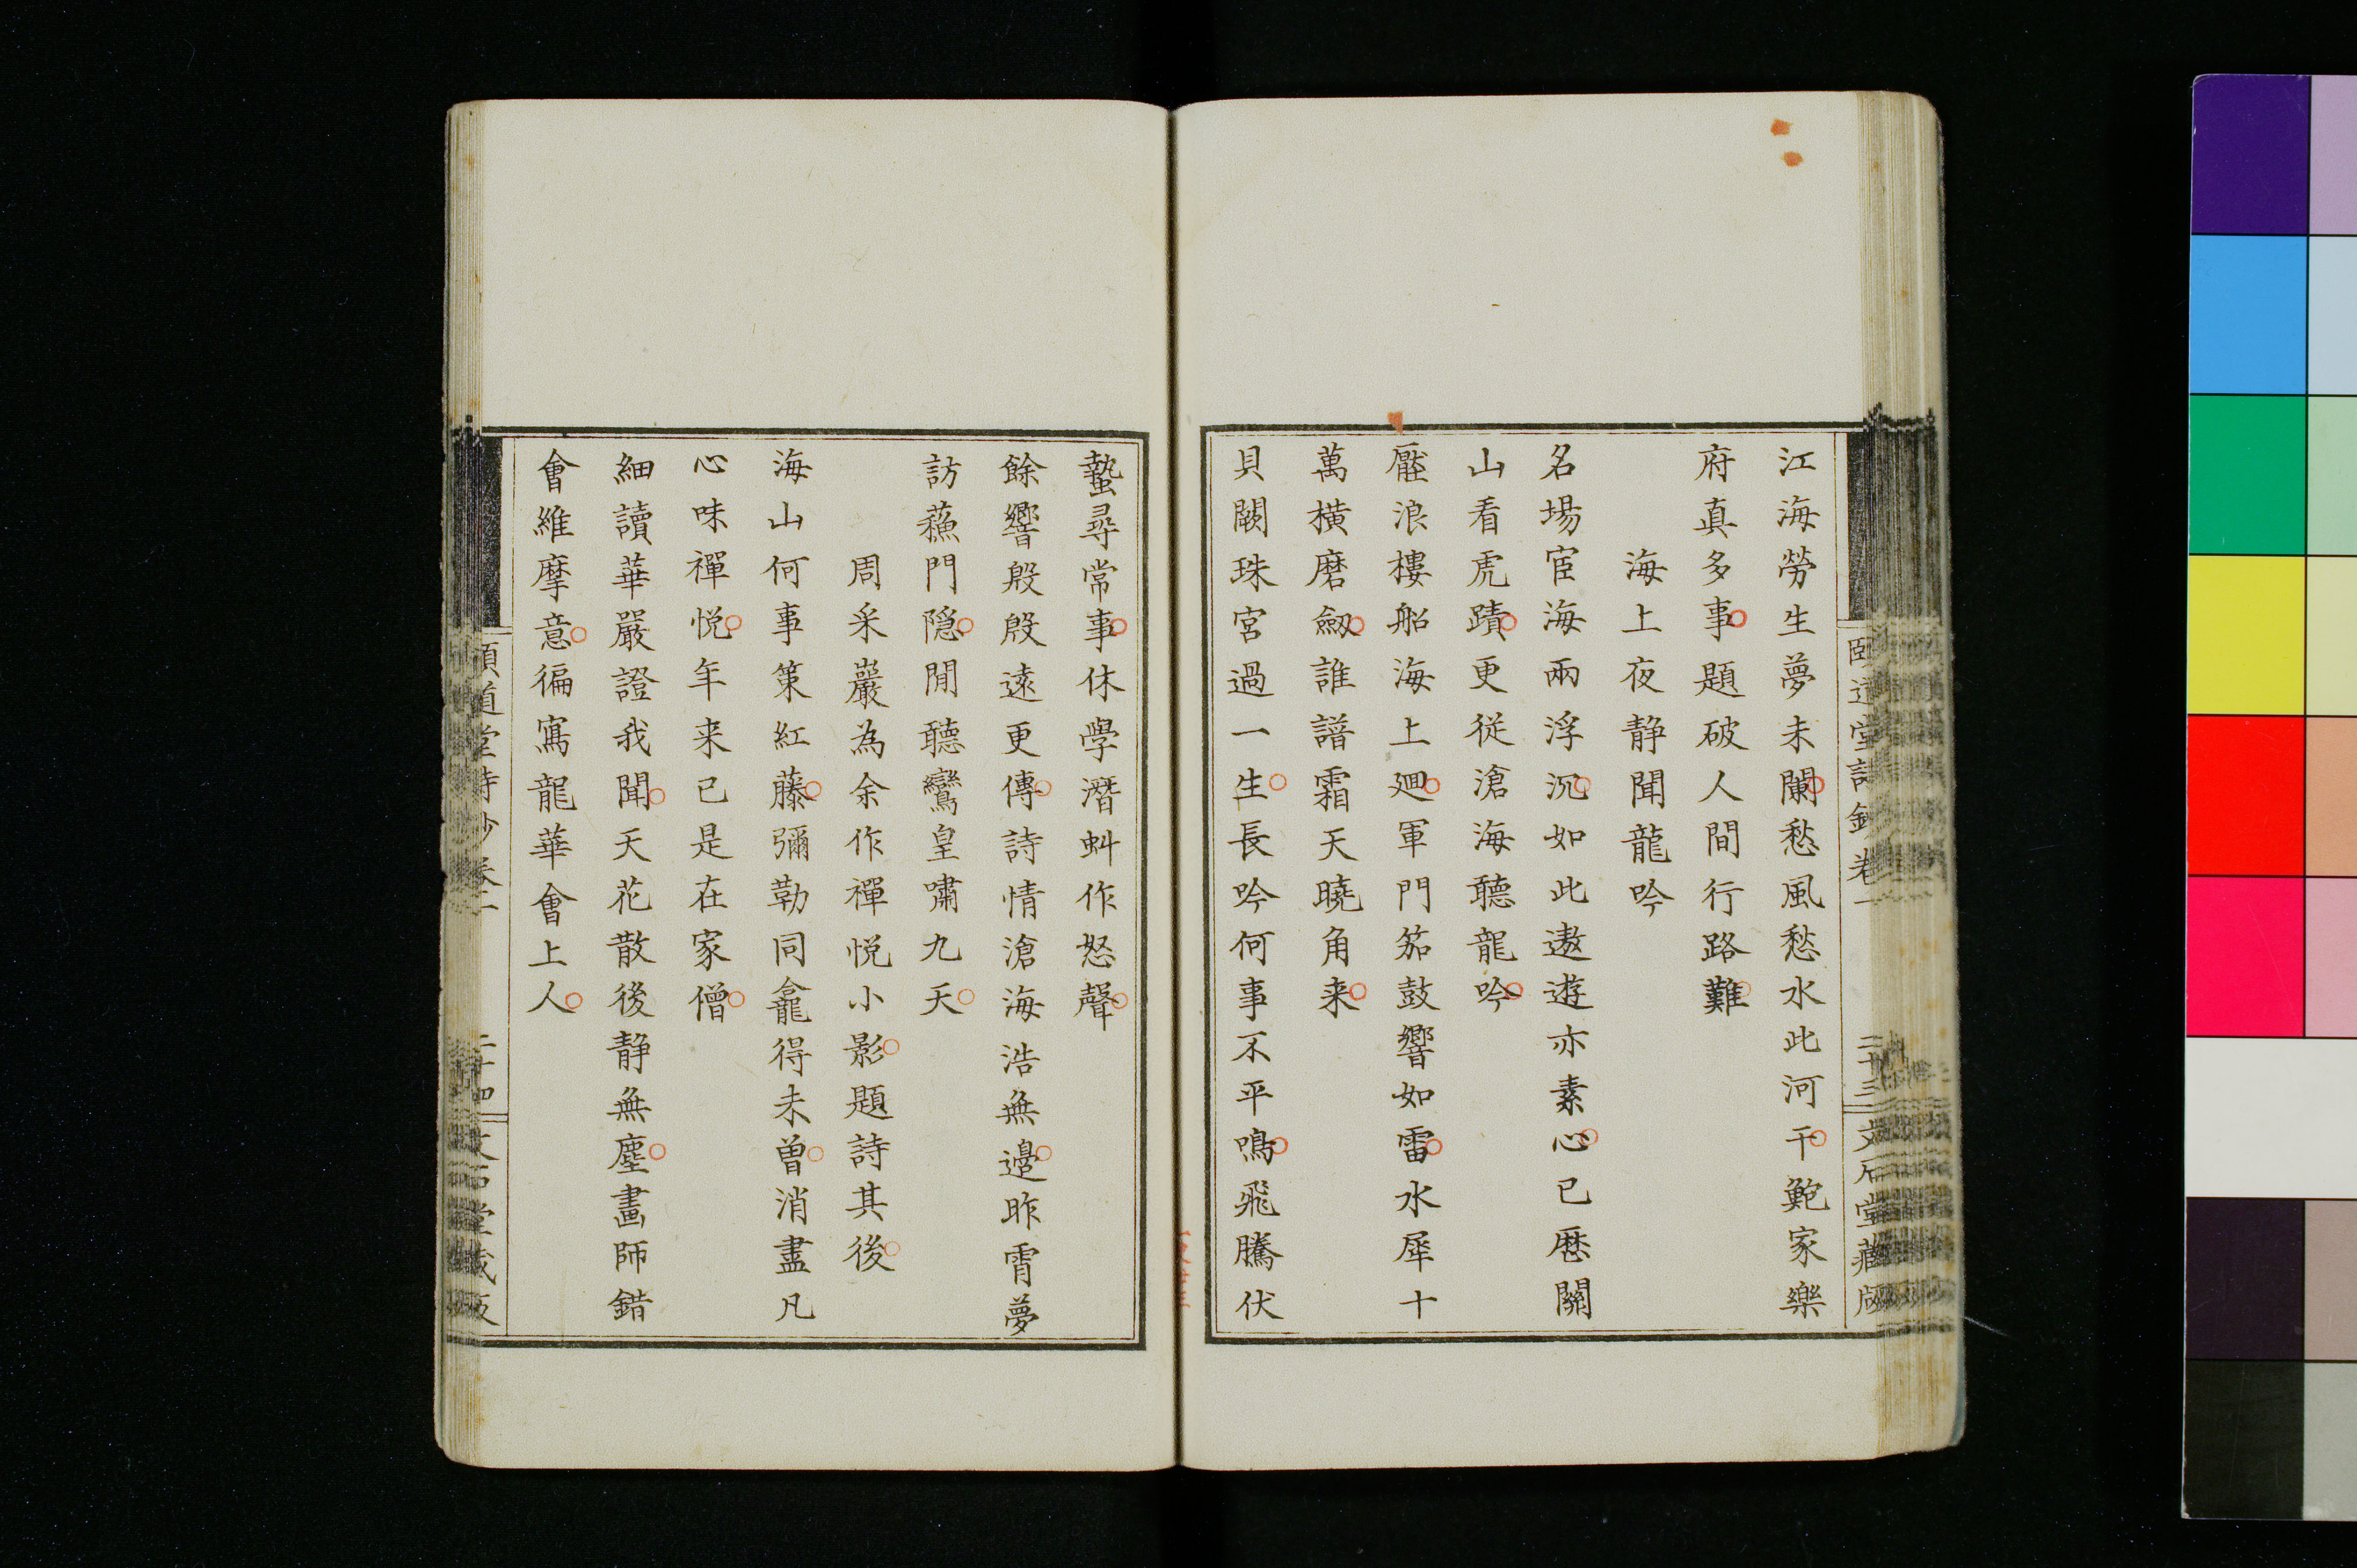 江海勞生夢未闌愁風愁水此河干鮑家樂
府真多事題破人間行路難
海上夜静聞龍吟
名場宦海兩浮沉如此遨遊亦素心已歷關
山看虎蹟更從滄海聽龍吟
壓浪樓船海上廻軍門笳鼓響如雷水犀十
萬橫磨劒誰譜霜天曉角来
貝闕珠宮過一生長吟何事不平鳴飛騰伏
蟄尋常事休學潛虯作怒聲
餘響殷殷遠更傳詩情滄海浩無邊昨宵夢
訪蘓門隱閒聽鸞皇嘯九天
周采巖為余作禪悅小影題詩其後
海山何事策紅藤彌勒同龕得未曾消盡凡
心味禪悅年来已是在家僧
細讀華嚴證我聞天花散後静無塵畫師錯
會維摩意徧寫龍華會上人
頤道堂詩鈔卷一
二十三
文石堂藏版
頤道堂詩鈔卷
二十四
文石堂藏版